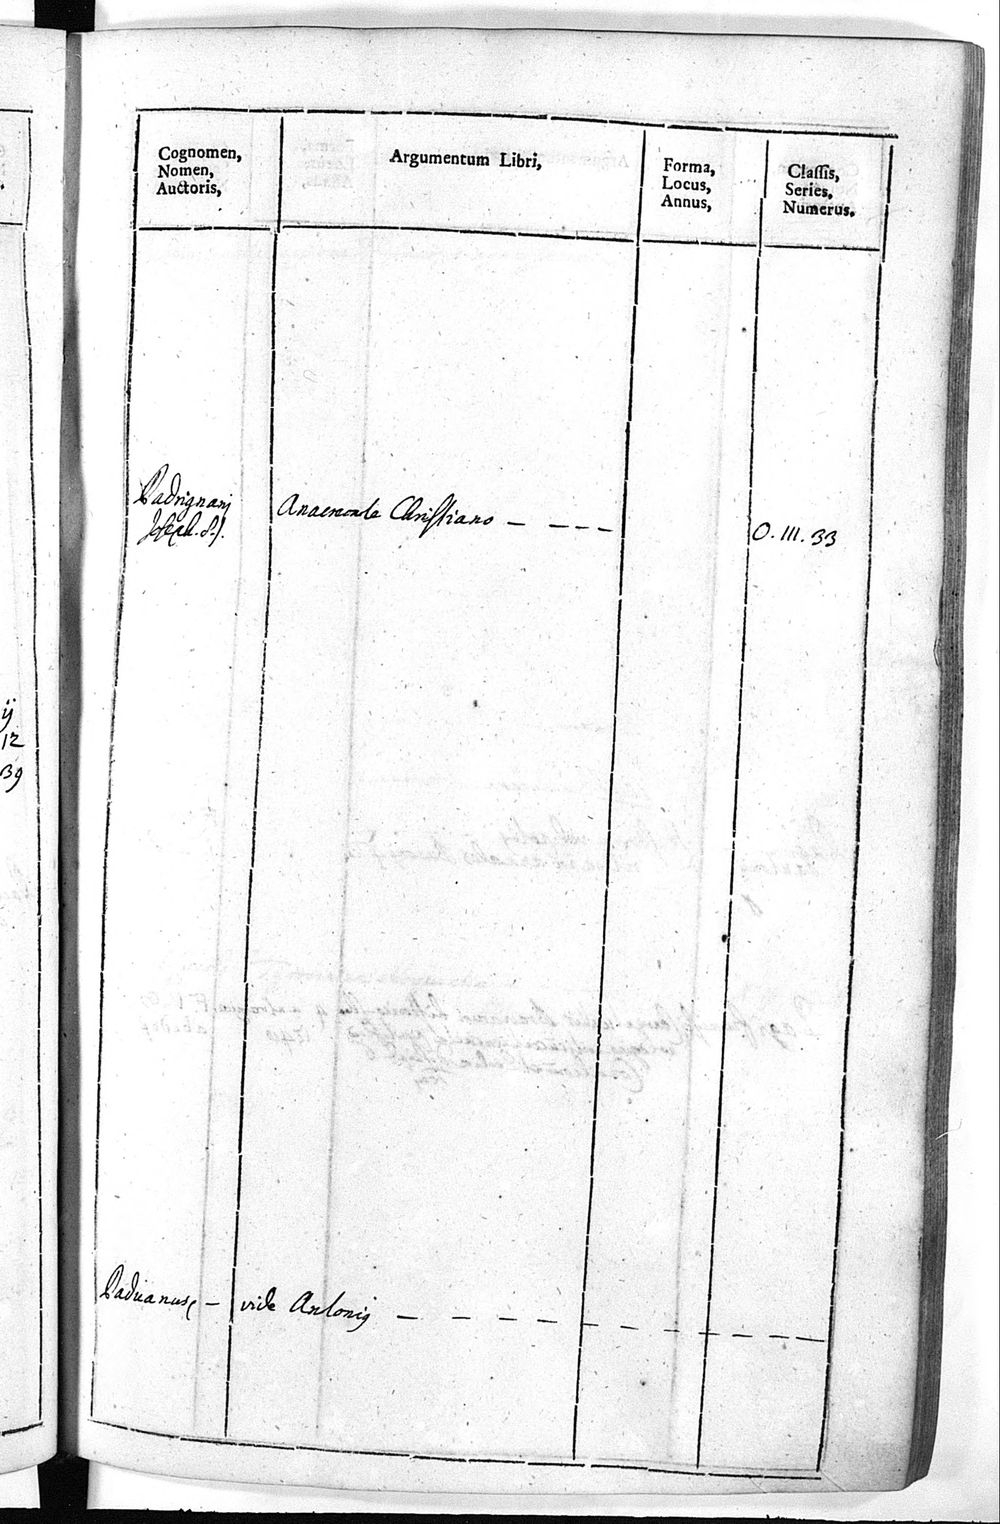 Cognomen,
Nomen,
Auctoris,
Argumentum Libri,
Forma,
Locus,
Annus,
Classis,
Series,
Numerus.
Padrignani
Joseph. S.J.
Christiano — — — —
O. III. 33
Paduanus — vide Antonij — — — —
ij
12
39